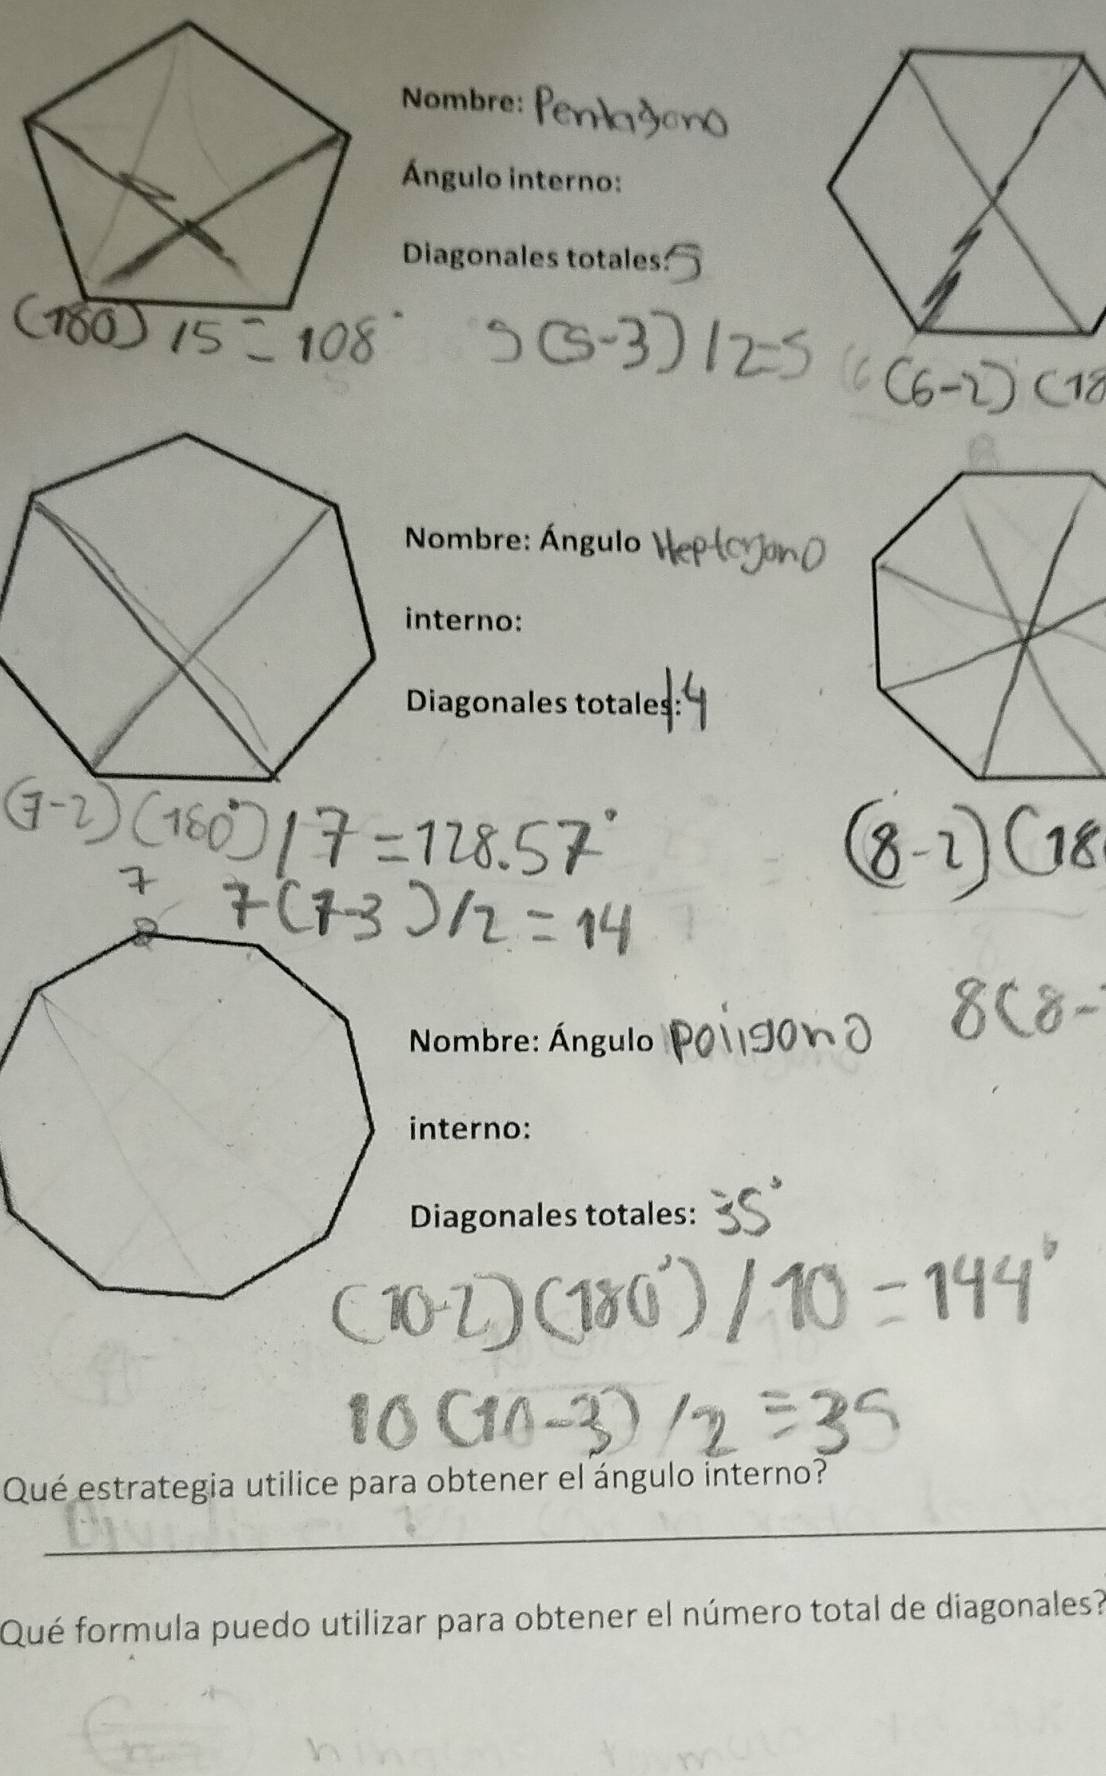 Nombre: Pentagono
Ángulo interno:
Diagonales totales: 5
(180) /5 = 108°
5(5-3) /2=5
(6-2) (18
Nombre: Ángulo Heptagono
interno:
Diagonales totales: 14
(7-2) (180°) / 7 = 128.57°
(8-2) (18
7
7(7-3)/2 = 14
8(8-
Nombre: Ángulo poligono
interno:
Diagonales totales: 35°
(10-2) (180°) / 10 = 144°
10 (10-3) /2 = 35
Qué estrategia utilice para obtener el ángulo interno?
Qué formula puedo utilizar para obtener el número total de diagonales?